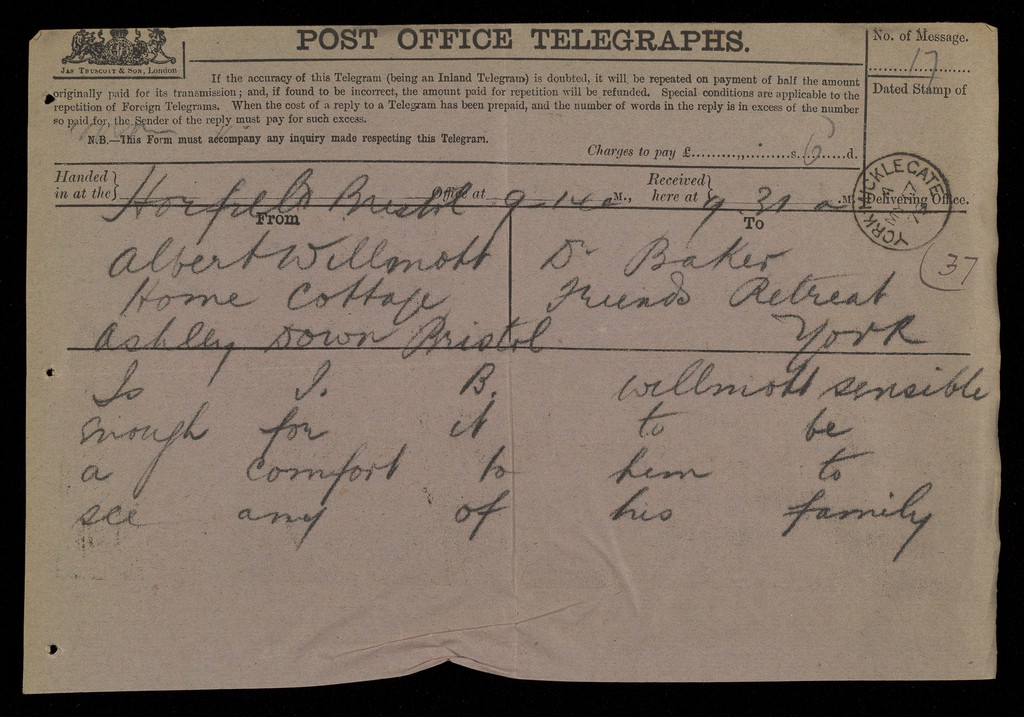 POST OFFICE TELEGRAPHS.
JAS TRUSCOTT & SON, London
No. of Message.
17
If the accuracy of this Telegram (being an Inland Telegram) is doubted, it will be repeated on payment of half the amount
originally paid for its transmission; and, if found to be incorrect, the amount paid for repetition will be refunded. Special conditions are applicable to the
repetition of Foreign Telegrams. When the cost of a reply to a Telegram has been prepaid, and the number of words in the reply is in excess of the number
so paid for, the Sender of the reply must pay for such excess.
N.B.—This Form must accompany any inquiry made respecting this Telegram.
Dated Stamp of
Charges to pay £ s 6 d.
Handed in at the Horfield Bristol Office at 9-14 a M., Received here at 9 31 a M.
Delivering Office.
YORK. MICKLEGATE
37
From
Albert Willmott
Home Cottage
Ashley Down Bristol
To
Dr Baker
Friends Retreat
York
Is J. B. Willmott sensible
enough for it to be
a comfort to him to
see any of his family